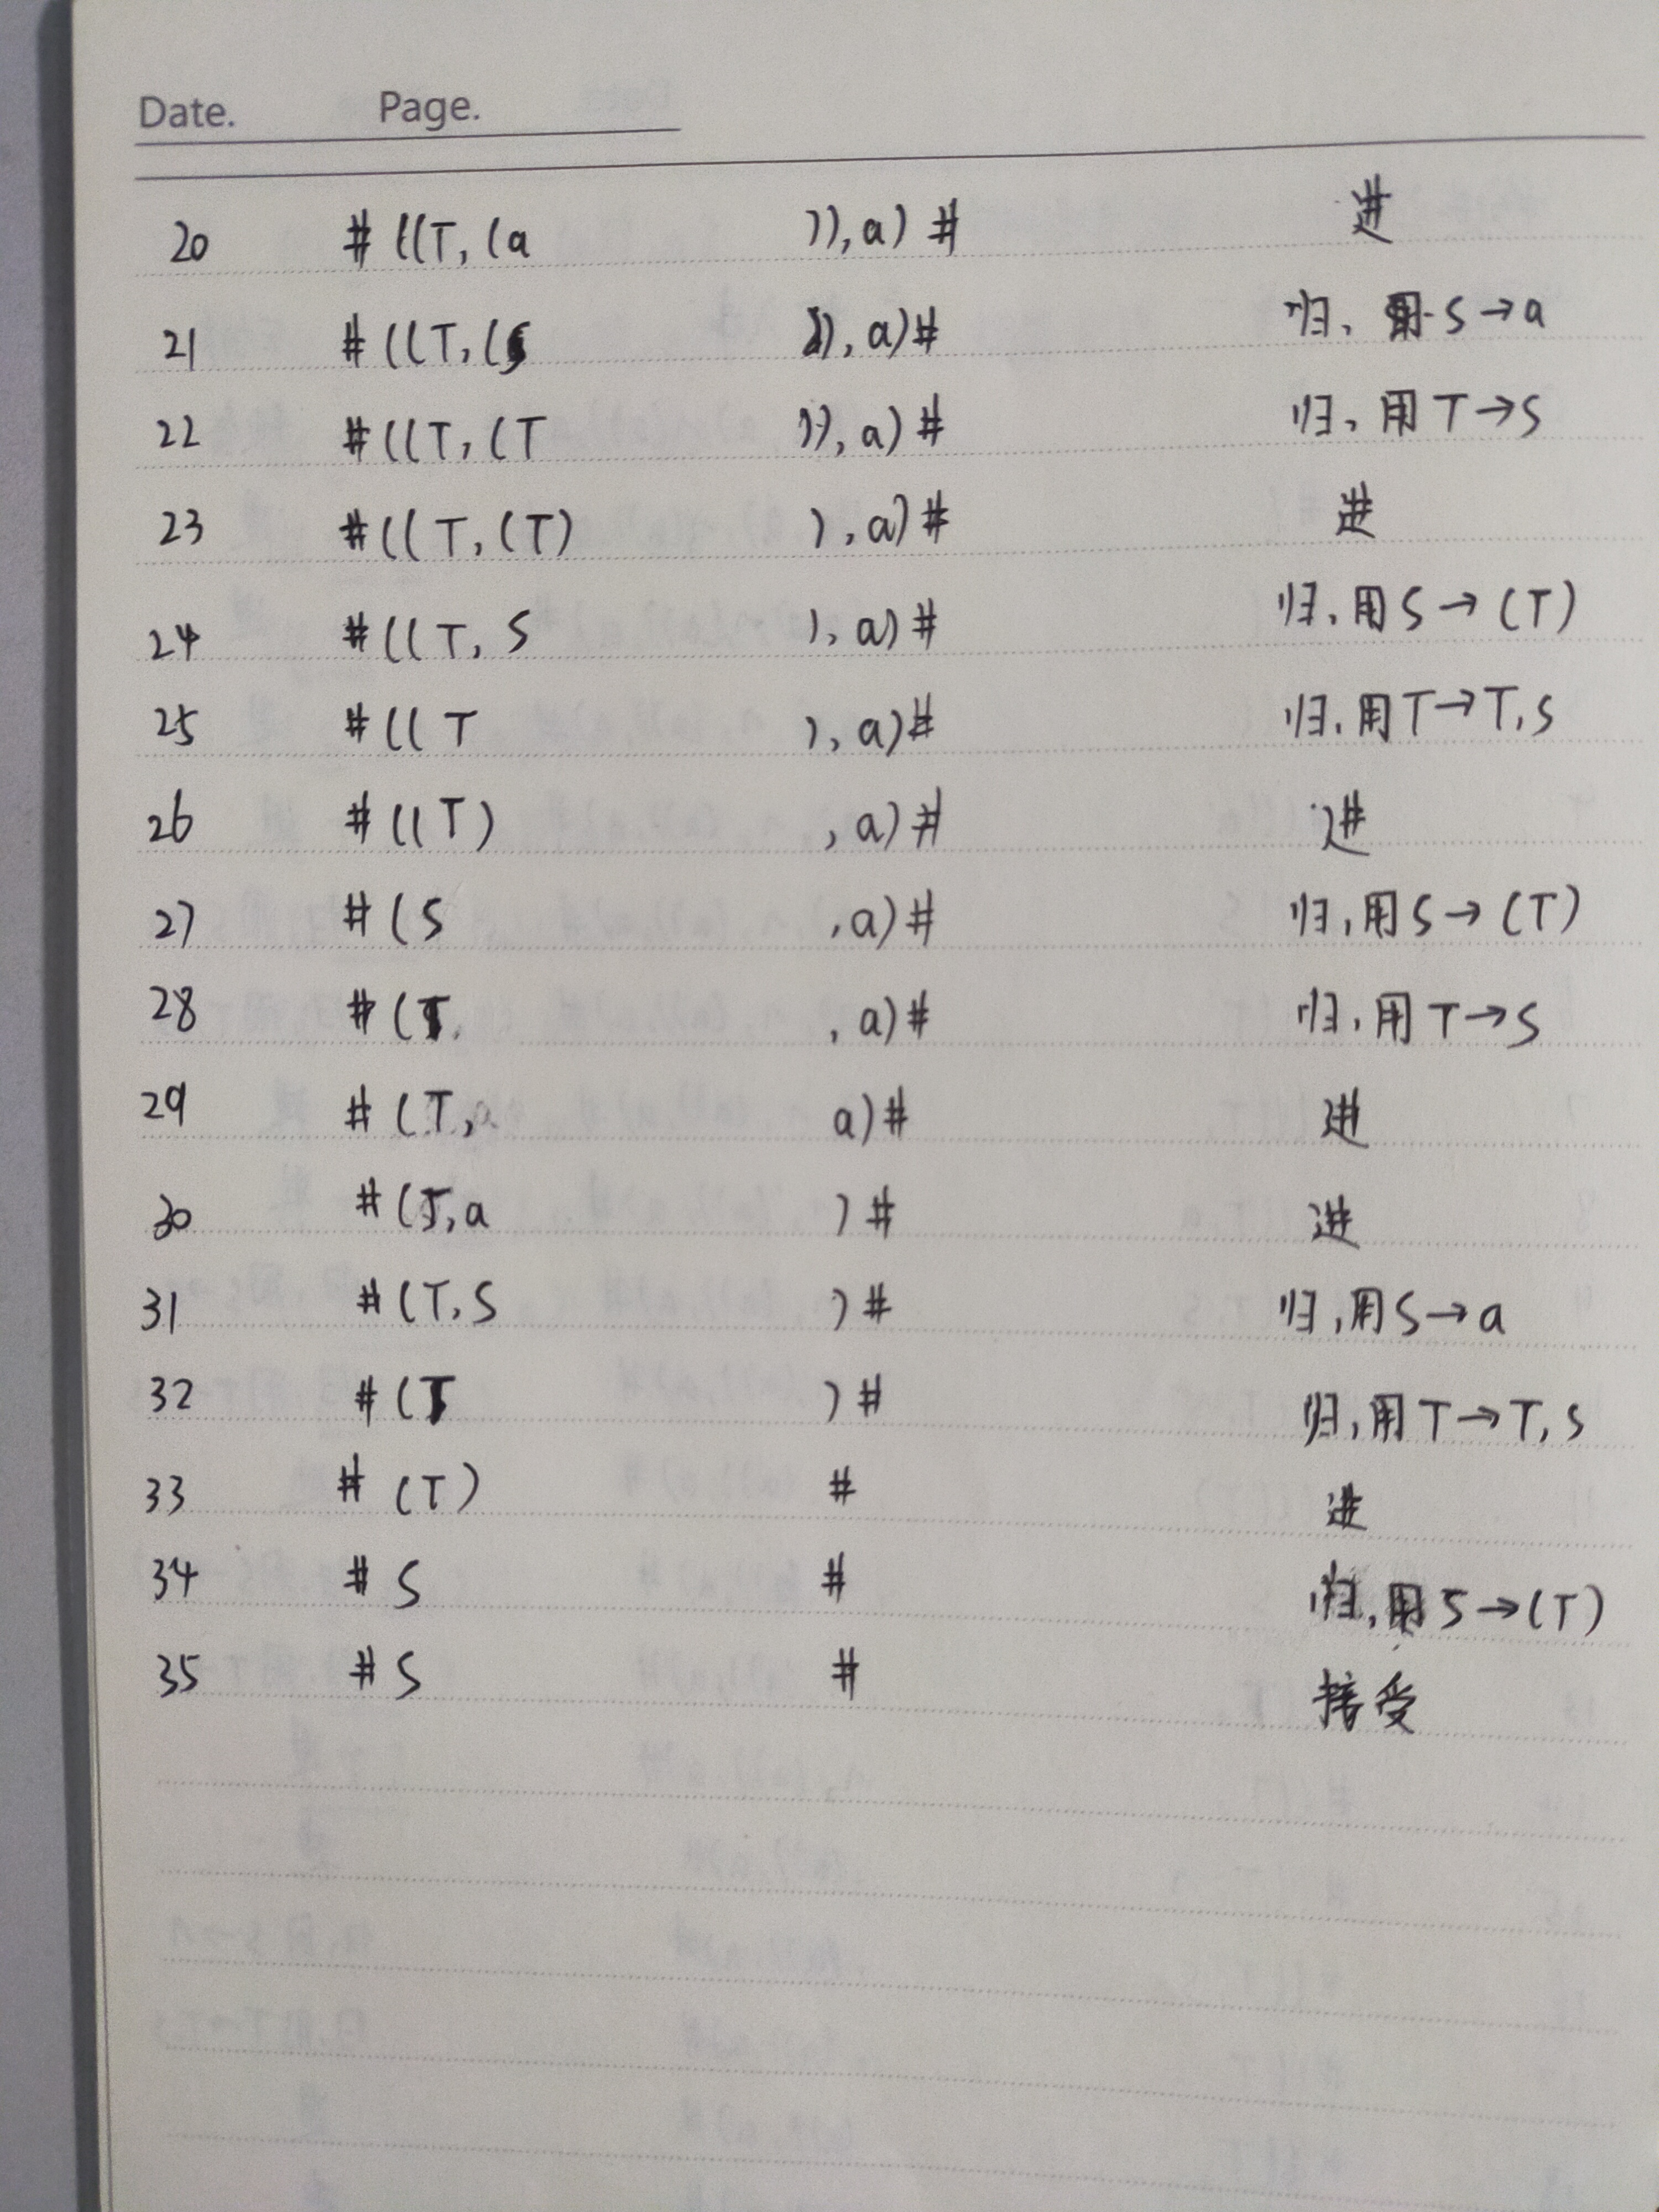 Date. Page.
20 # ((T, (a )), a) # 进
21 # ((T, (S )), a)# 归, 用 S → a
22 # ((T, (T )), a) # 归, 用 T → S
23 # ((T, (T) ), a)# 进
24 # ((T, S ), a) # 归, 用 S → (T)
25 # ((T ), a)# 归, 用 T → T, S
26 # ((T) , a) # 进
27 # (S , a)# 归, 用 S → (T)
28 # (T , a)# 归, 用 T → S
29 # (T, a)# 进
30 # (T, a )# 进
31 # (T, S )# 归, 用 S → a
32 # (T )# 归, 用 T → T, S
33 # (T) # 进
34 # S # 归, 用 S → (T)
35 # S # 接受